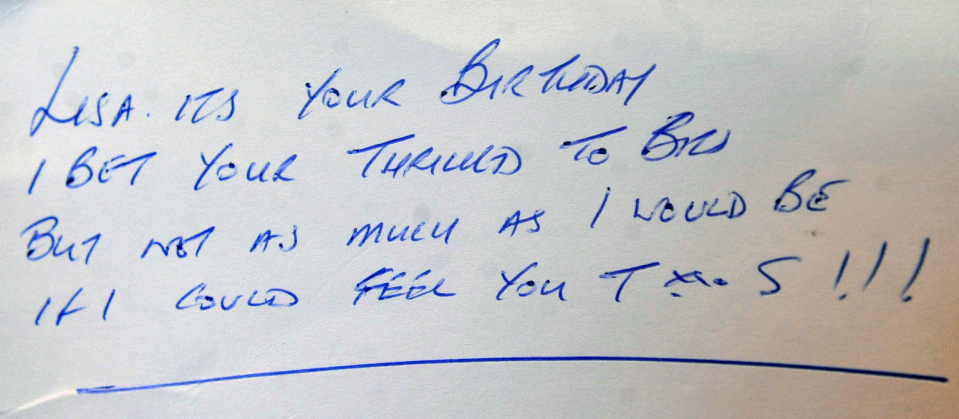 LISA. ITS YOUR BIRTHDAY
I BET YOUR THRILLED TO BITS
BUT NOT AS MUCH AS I WOULD BE
IF I COULD FEEL YOU T S!!!